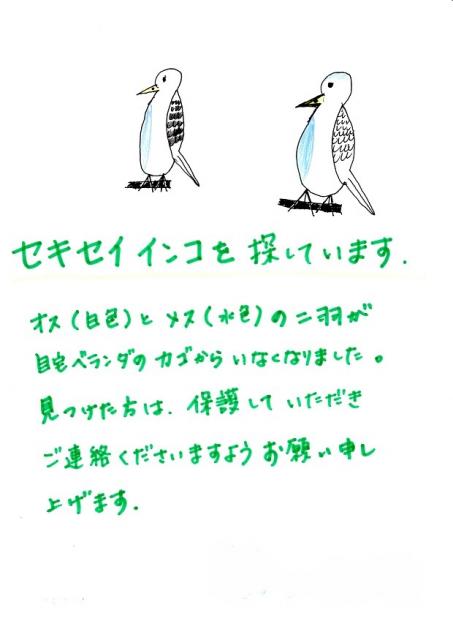 セキセイインコを探しています.
オス(白色)とメス(水色)の二羽が
自宅ベランダのカゴからいなくなりました。
見つけた方は.保護していただき
ご連絡くださいますようお願い申し
上げます.